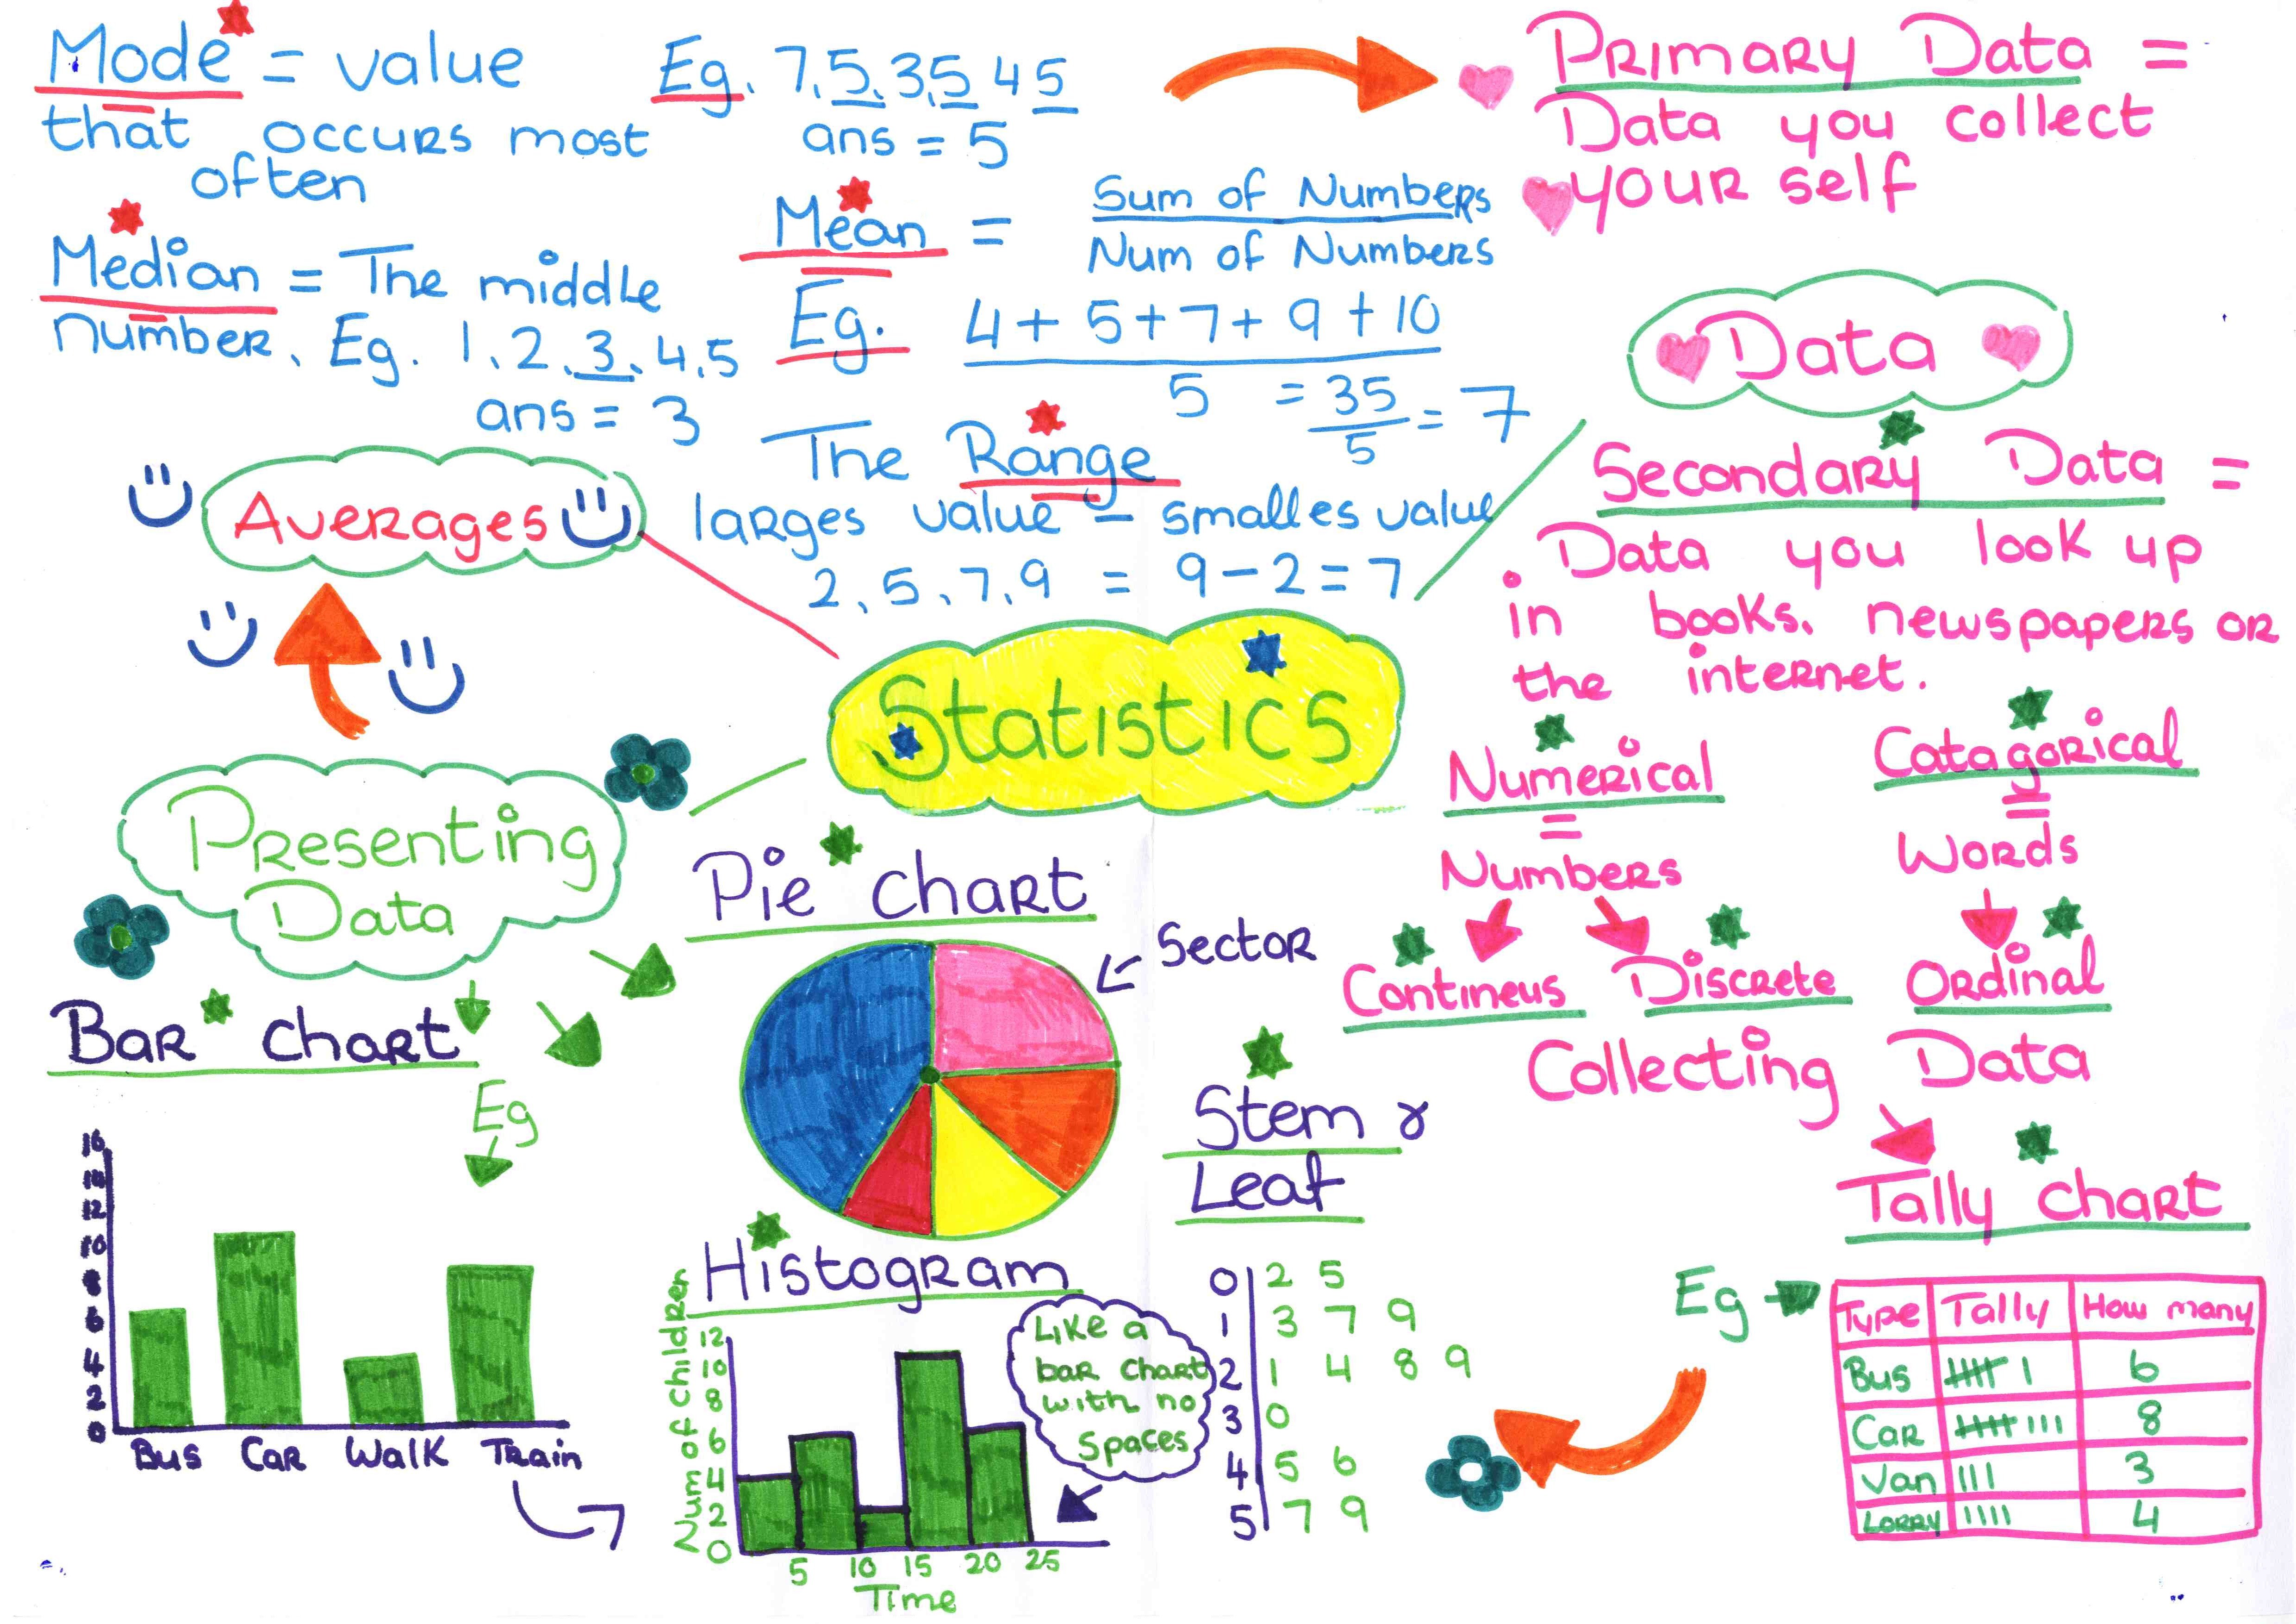 Mode = value
that occurs most
often
Eg. 7, 5, 3, 5 4 5
ans = 5
Median = The middle
number, Eg. 1, 2, 3, 4, 5
ans = 3
Mean = Sum of Numbers
Num of Numbers
Eg. 4 + 5 + 7 + 9 + 10
5 = 35 = 7
5
The Range
larges value - smalles value
2, 5, 7, 9 = 9 - 2 = 7
Averages
Primary Data =
Data you collect
your self
Data
Secondary Data =
Data you look up
in books, newspapers or
the internet.
Numerical
=
Numbers
Contineus Discrete
Catagorical
=
Words
Ordinal
Collecting Data
Tally chart
Eg
Type Tally How many
Bus 6
Car 8
Van 3
Lorry 4
Statistics
Presenting
Data
Bar chart
Eg
16
14
12
10
8
6
4
2
0
Bus Car Walk Train
Pie chart
Sector
Histogram
Num of Children
12
10
8
6
4
2
0
5 10 15 20 25
Time
Like a
bar chart
with no
spaces
Stem &
Leaf
0 2 5
1 3 7 9
2 1 4 8 9
3 0
4 5 6
5 7 9